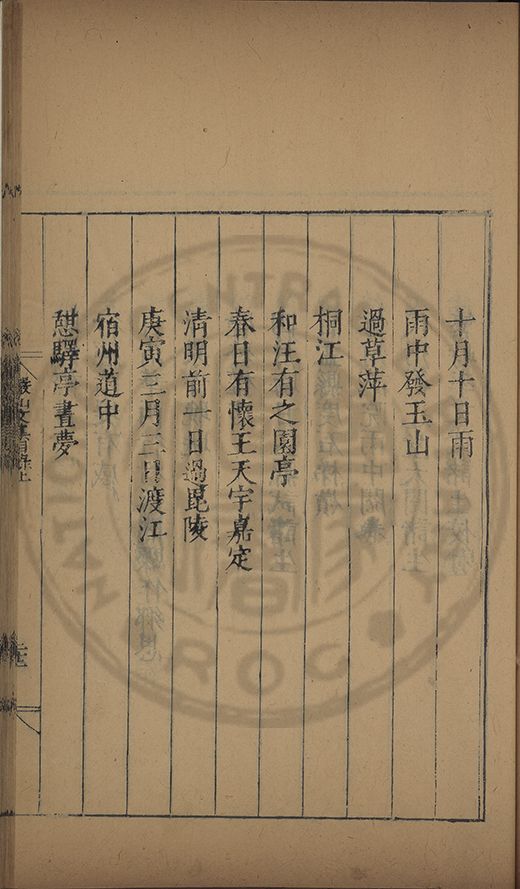 十月十日雨
雨中發玉山
過草萍
桐江
和汪有之園亭
春日有懷王天宇嘉定
清明前一日過毘陵
庚寅三月三日渡江
宿州道中
憇驛亭晝夢